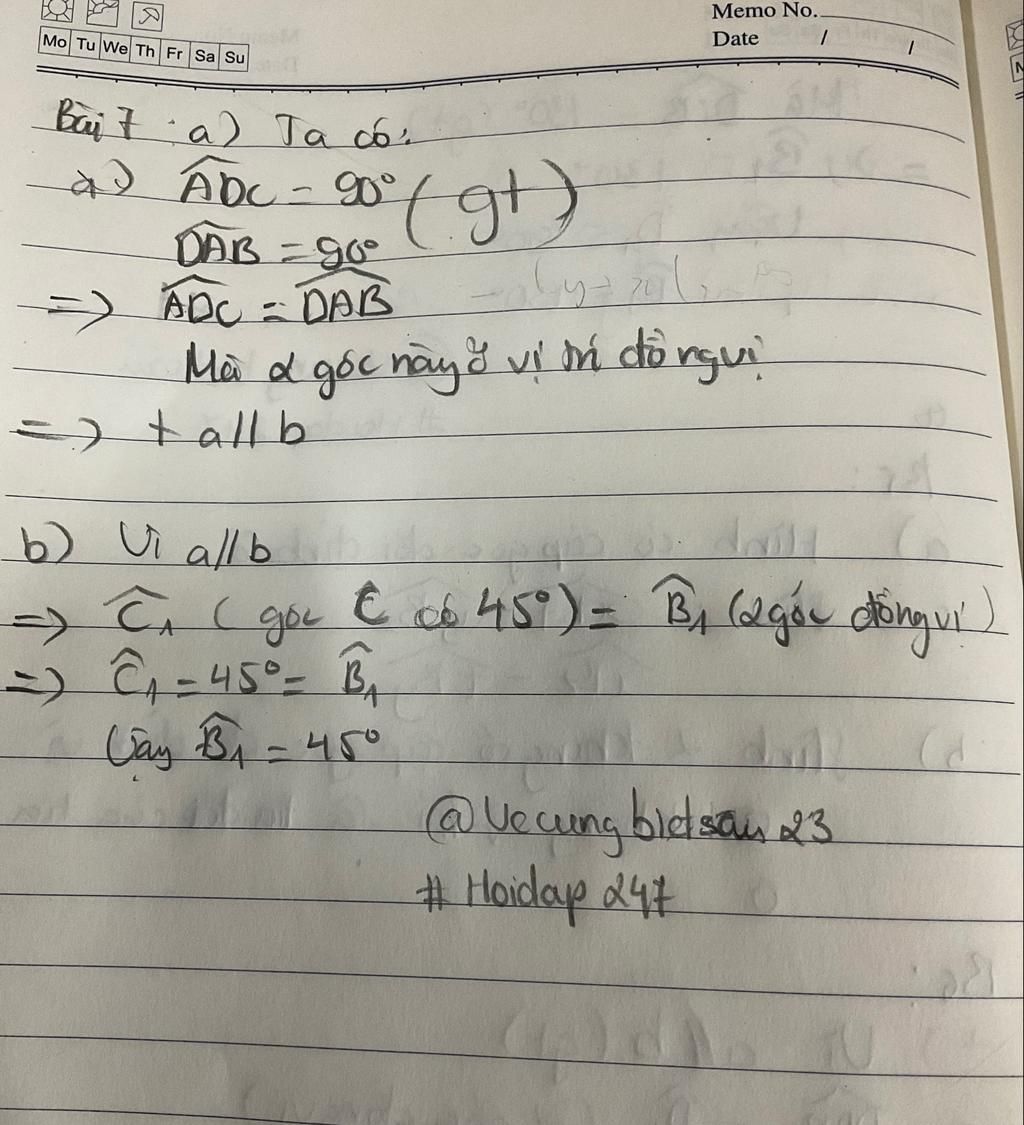 Memo No.
Date / /
Mo Tu We Th Fr Sa Su
Bài 7 : a) Ta có:
a) \widehat{ADC} = 90° (gt)
\widehat{DAB} = 90°
=> \widehat{ADC} = \widehat{DAB}
Mà 2 góc này ở vị trí đồng vị
=> + a // b
b) Vì a // b
=> \widehat{C}_1 ( góc C có 45°) = \widehat{B}_1 (2 góc đồng vị)
=> \widehat{C}_1 = 45° = \widehat{B}_1
Vậy \widehat{B}_1 = 45°
@Vecungbietsau23
# Hoidap 247